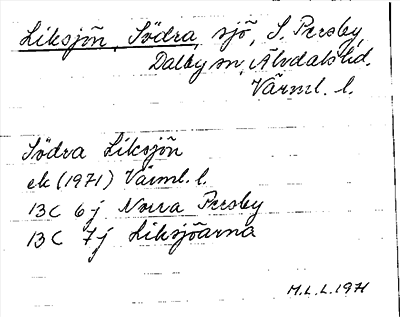 Liksjön, Södra, sjö, S. Persby,
Dalby sn, Älvdals hd.
Värml. l.
Södra Liksjön
ek (1971) Värml. l.
13C 6j Norra Persby
13C 7j Liksjöarna
M.L.L. 1971